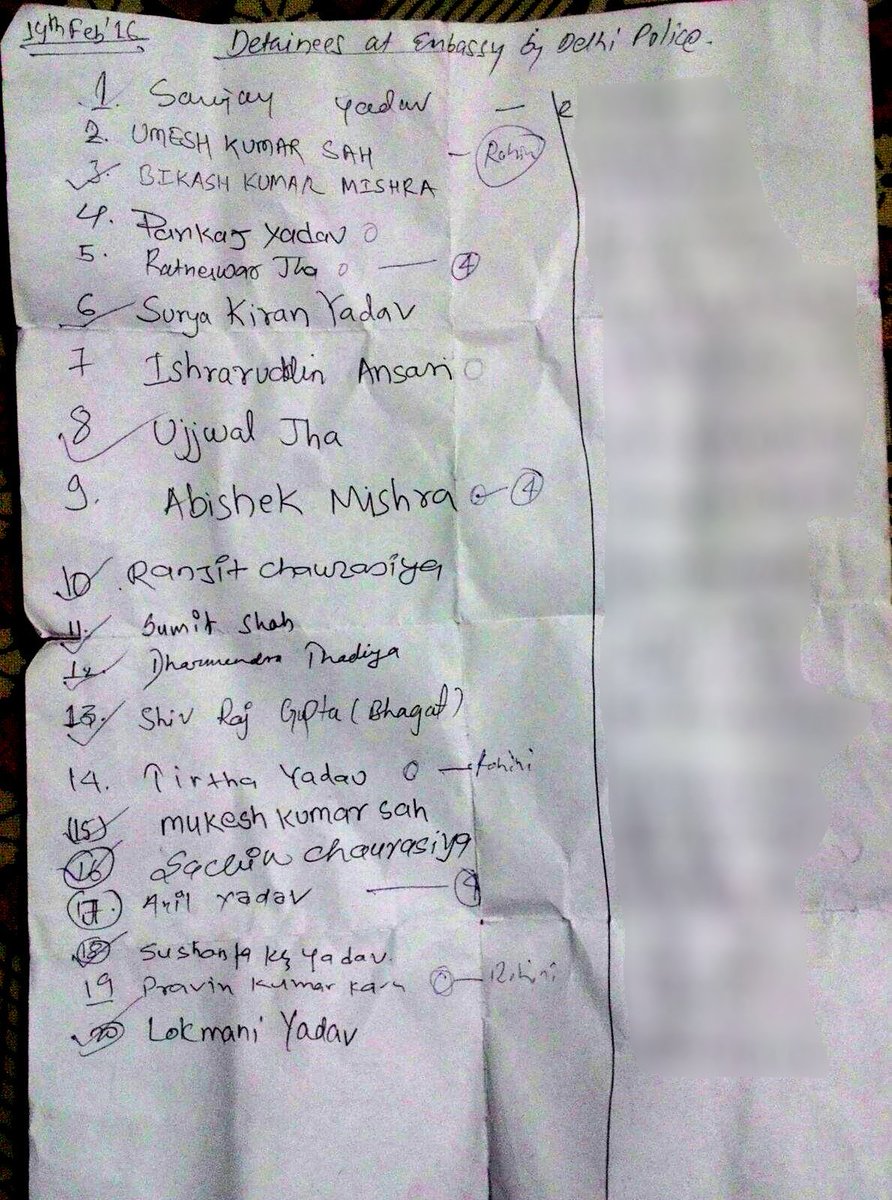 19th Feb'16
Detainees at Embassy by Delhi Police.
1. Sanjay Yadav —
2. UMESH KUMAR SAH — Rohini
3. BIKASH KUMAR MISHRA
4. Pankaj Yadav
5. Ratneswar Jha — 4
6 Surya Kiran Yadav
7 Ishraruddin Ansari
8 Ujjwal Jha
9. Abishek Mishra — 4
10 Ranjit chaurasiya
11. Sumit Shah
12. Dharmendra Thadiya
13. Shiv Raj Gupta (Bhagat)
14. Tirtha Yadav — Rohini
15 mukesh kumar sah
16 Sachin chaurasiya
17. Anil Yadav — 4
18 Sushanta Kr Yadav.
19 Pravin Kumar Karn — Rohini
20 Lokmani Yadav